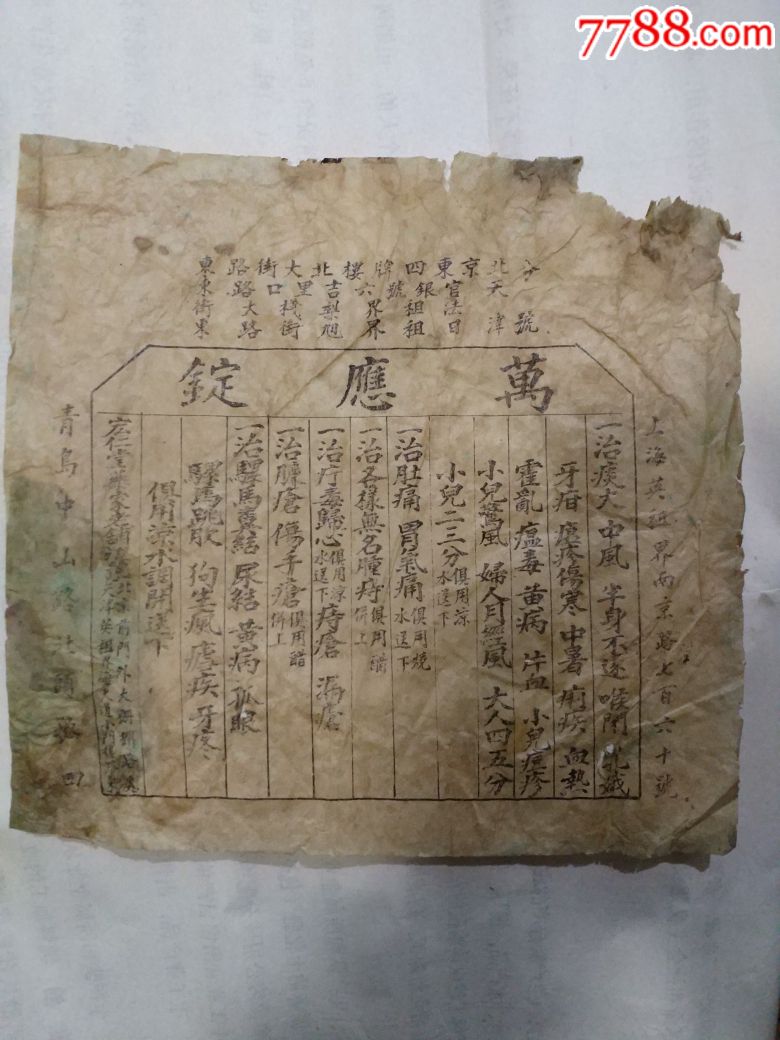 分號
北京東四牌樓北大街路東
天津官銀號六吉里口路東
法租界梨棧大街
日租界旭街路東
萬應錠
上海英租界南京路七百六十號
一治痰火 中風 半身不遂 喉閉 乳蛾
牙疳 瘟疹傷寒 中暑 痢疾 血熱
霍亂 瘟毒 黃病 片血 小兒痘疹
小兒驚風 婦人月經風 大人四五分
小兒二三分俱用涼水送下
一治肚痛 胃氣痛俱用燒水送下
一治各樣無名腫痔俱用醋併上
一治疔毒歸心俱用涼水送下痔瘡 漏瘡
一治臁瘡 傷手瘡俱用醋併上
一治騾馬糞結 尿結 黃病 孤眼
騾馬跳散 狗生瘋 瘧疾 牙疼
俱用涼水調開送下
宏仁堂樂家老舖 北京前門外大柵欄 天津英租界
青島中山路北頭